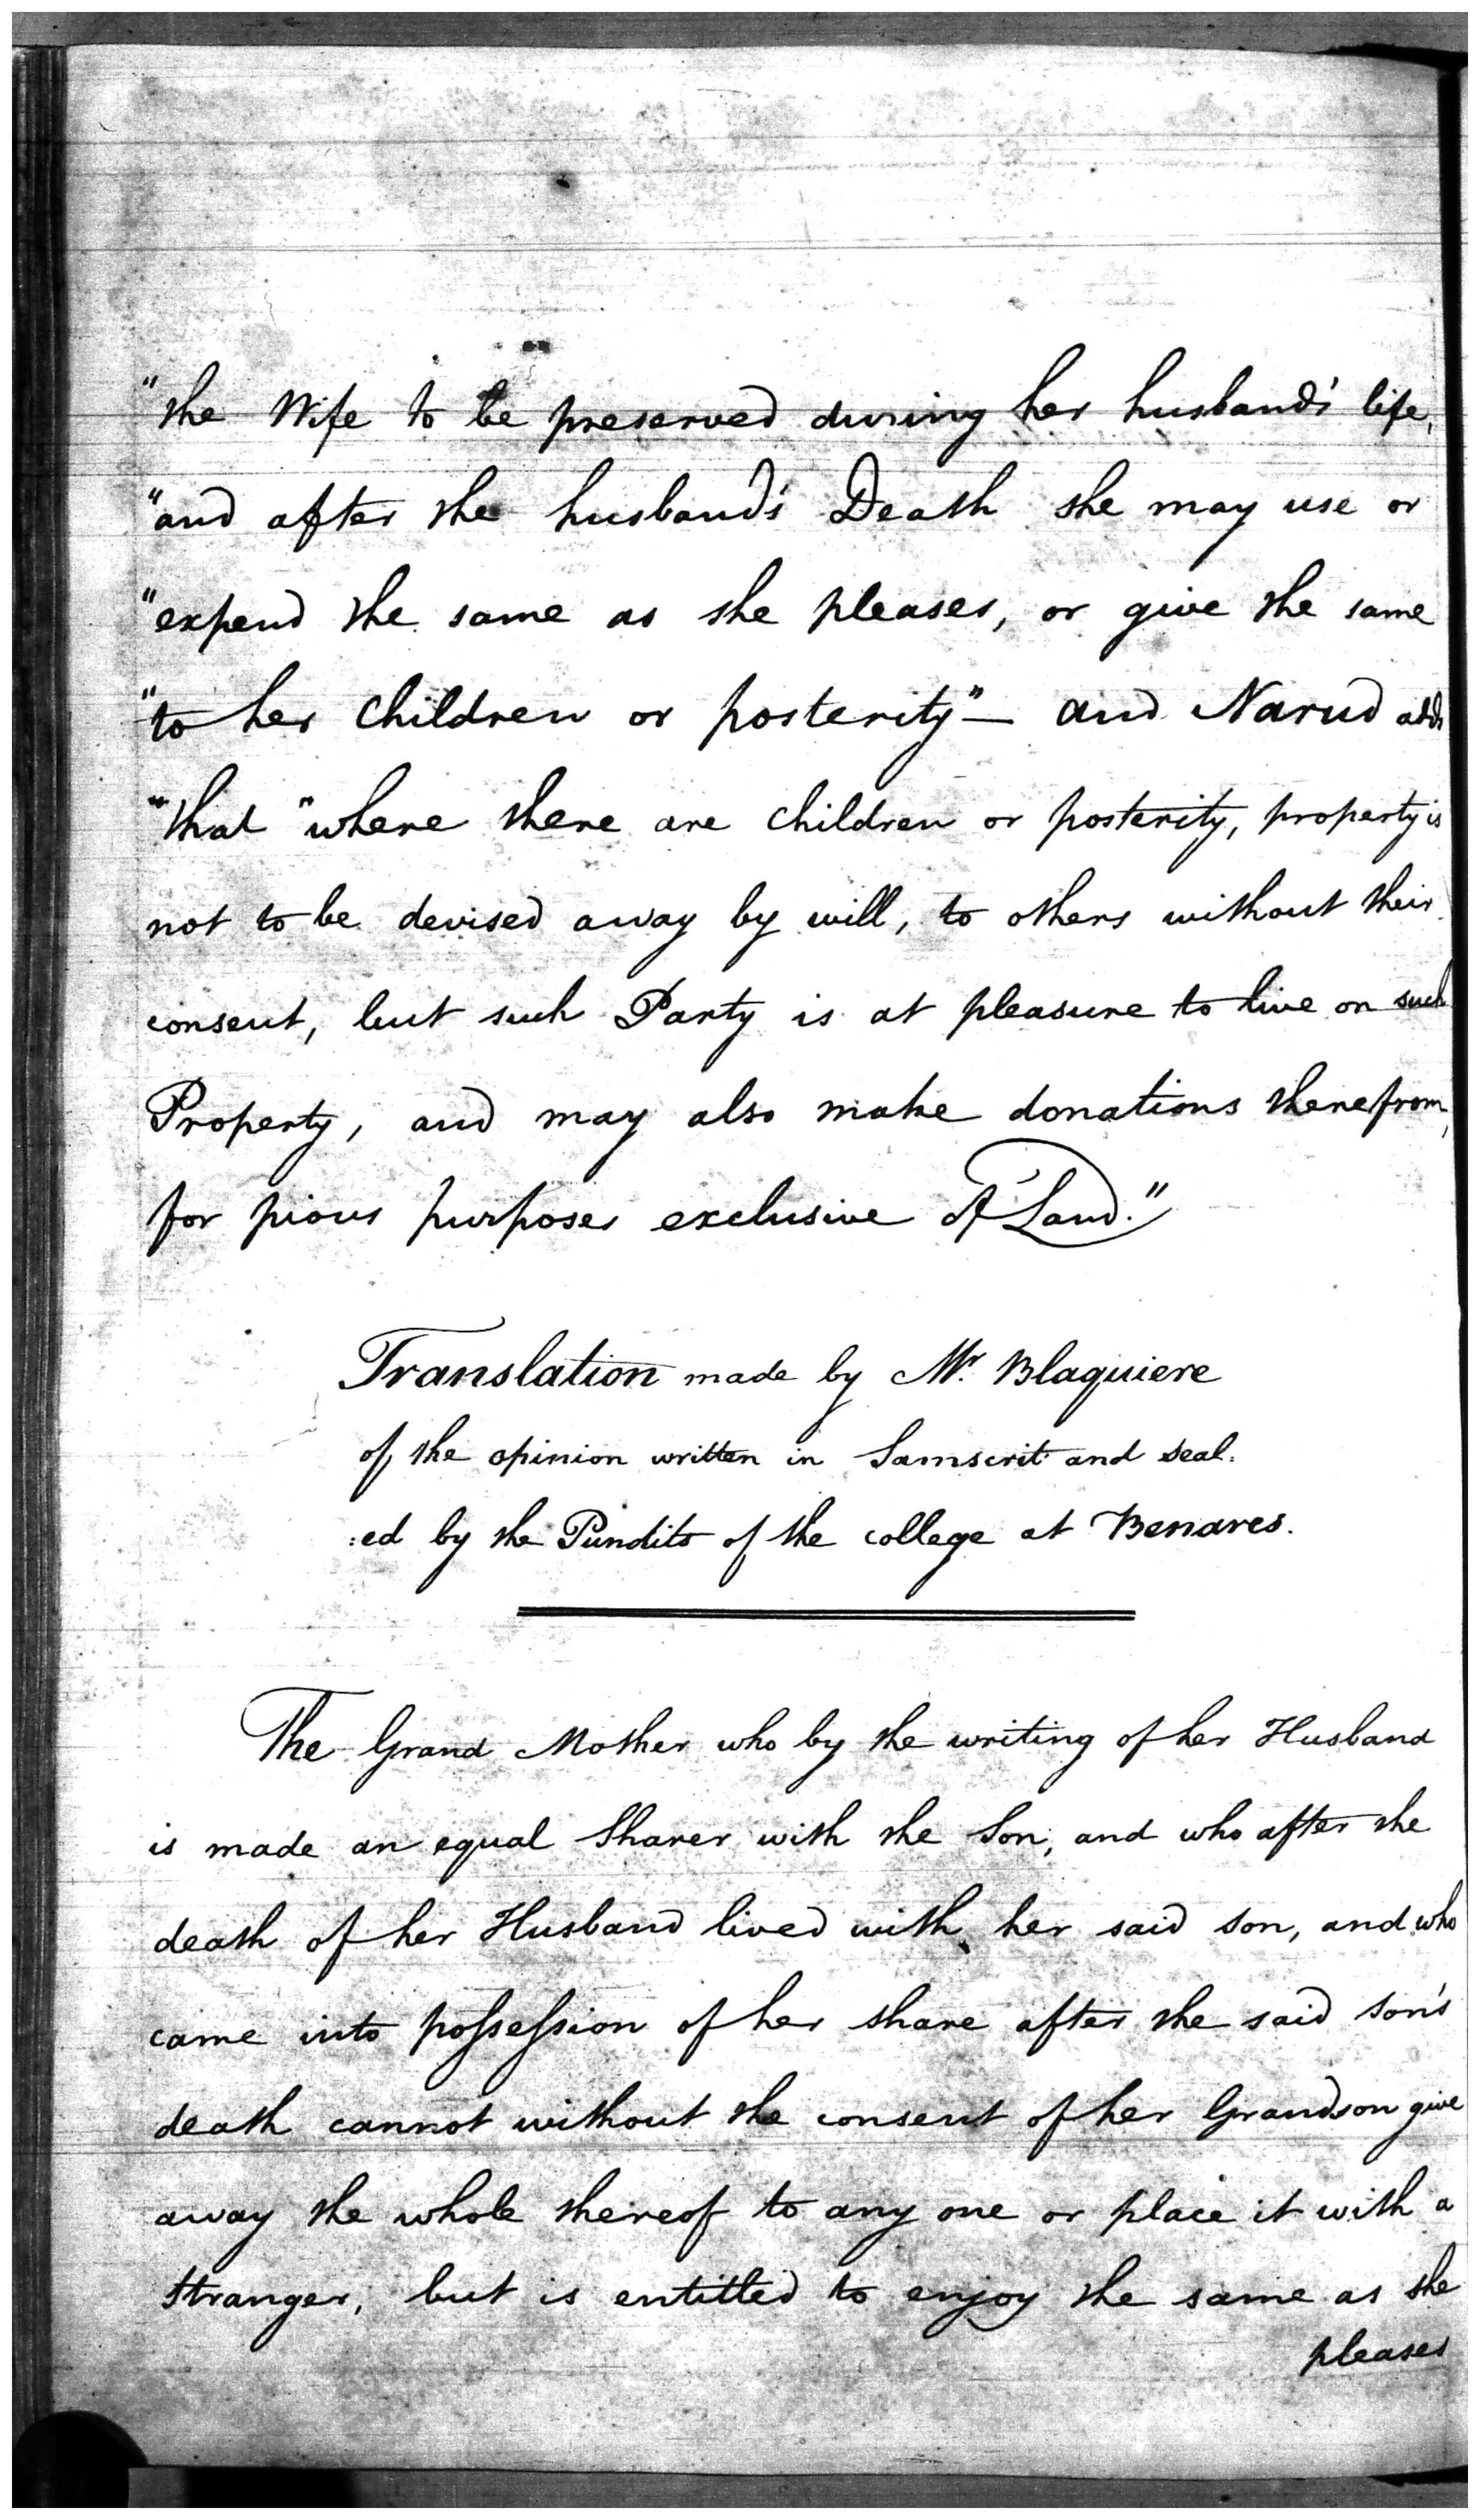 "the Wife to be preserved during her husband's life,
"and after the husband's Death she may use or
"expend the same as she pleases, or give the same
"to her children or posterity"— and Narud adds
"that "where there are children or posterity, property is
not to be devised away by will, to others without their
consent, but such Party is at pleasure to live on such
Property, and may also make donations therefrom,
for pious purposes exclusive of Land."
Translation made by Mr. Blaquiere
of the opinion written in Samscrit and seal:
:ed by the Pundits of the college at Benares.
The Grand Mother who by the writing of her Husband
is made an equal Sharer with the Son, and who after the
death of her Husband lived with her said son, and who
came into possession of her share after the said son's
death cannot without the consent of her Grandson give
away the whole thereof to any one or place it with a
Stranger, but is entitled to enjoy the same as she
pleases